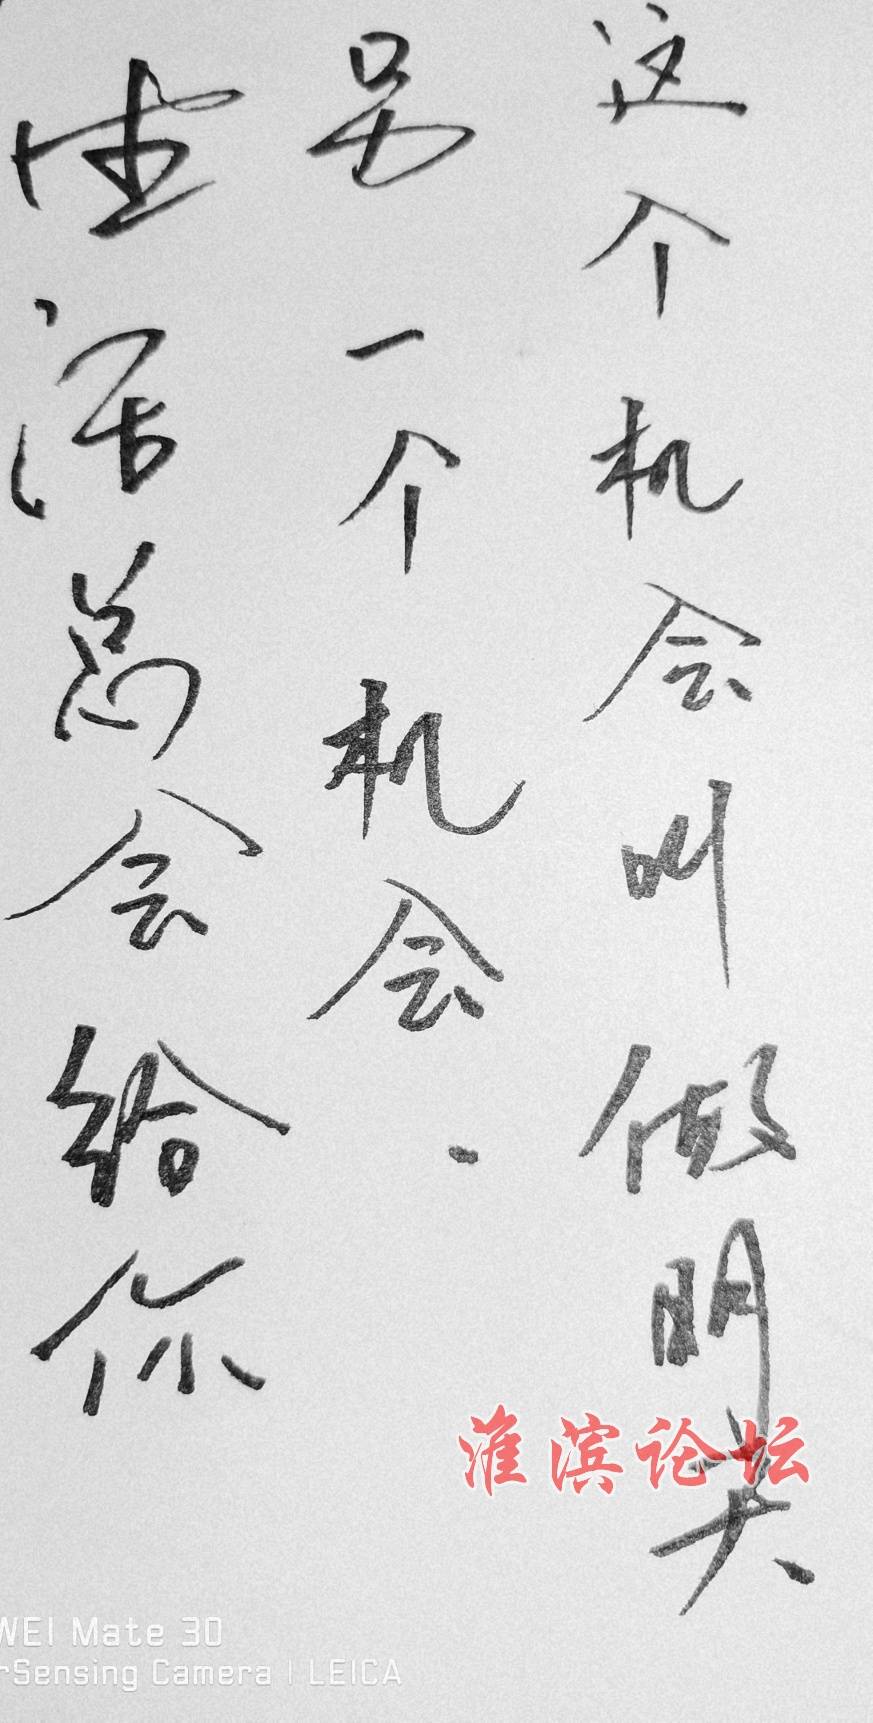 生活总会给你
另一个机会、
这个机会叫做明天
淮滨论坛
WEI Mate 30
rSensing Camera | LEICA